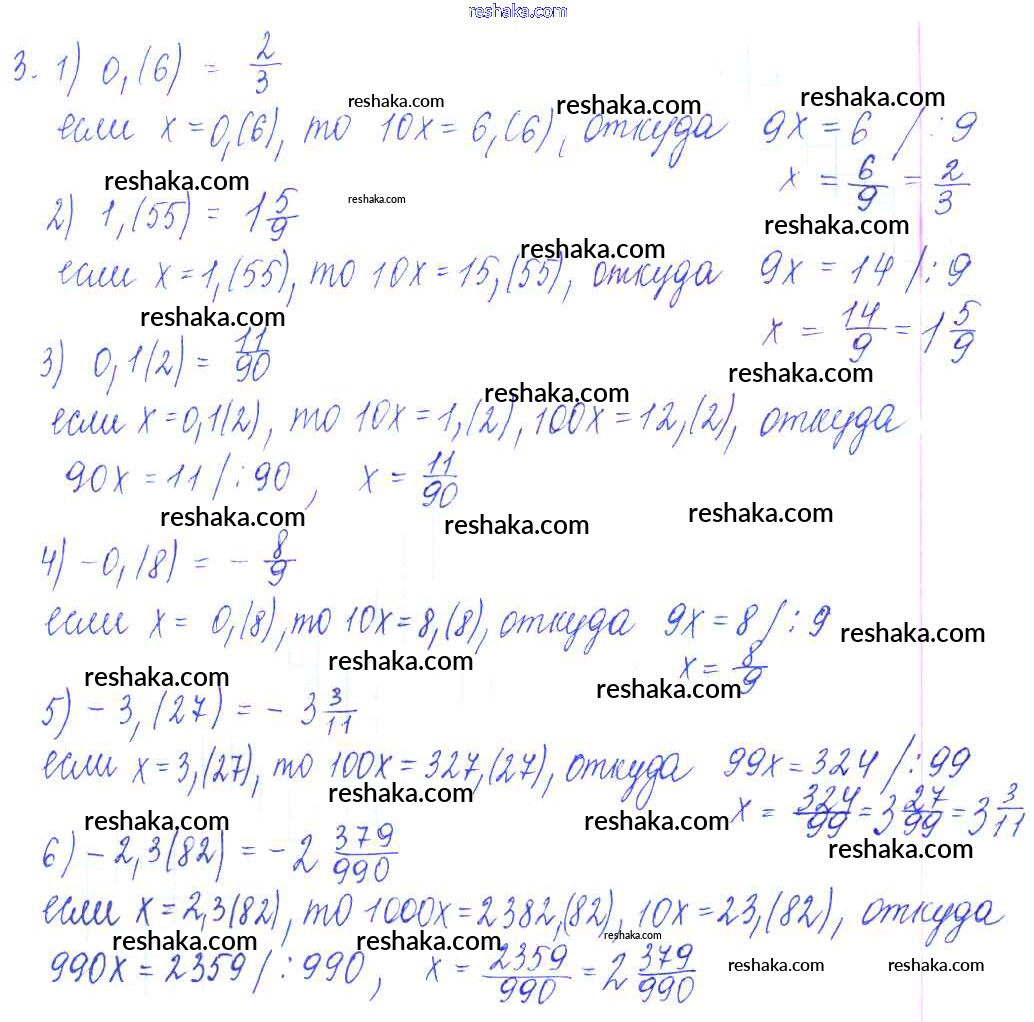 reshaka.com
3. 1) 0,(6) = 2/3
reshaka.com reshaka.com reshaka.com
если x = 0,(6), то 10x = 6,(6), откуда 9x = 6 /:9
reshaka.com x = 6/9 = 2/3
2) 1,(55) = 1 5/9 reshaka.com
reshaka.com reshaka.com
если x = 1,(55), то 10x = 15,(55), откуда 9x = 14 /:9
reshaka.com x = 14/9 = 1 5/9
3) 0,1(2) = 11/90
reshaka.com reshaka.com
если x = 0,1(2), то 10x = 1,(2), 100x = 12,(2), откуда
90x = 11 /:90, x = 11/90
reshaka.com reshaka.com reshaka.com
4) -0,(8) = - 8/9
если x = 0,(8), то 10x = 8,(8), откуда 9x = 8 /:9
reshaka.com
reshaka.com x = 8/9
reshaka.com reshaka.com
5) -3,(27) = -3 3/11
если x = 3,(27), то 100x = 327,(27), откуда 99x = 324 /:99
reshaka.com x = 324/99 = 3 27/99 = 3 3/11
reshaka.com reshaka.com
6) -2,3(82) = -2 379/990 reshaka.com
если x = 2,3(82), то 1000x = 2382,(82), 10x = 23,(82), откуда
reshaka.com reshaka.com reshaka.com
990x = 2359 /:990, x = 2359/990 = 2 379/990
reshaka.com reshaka.com